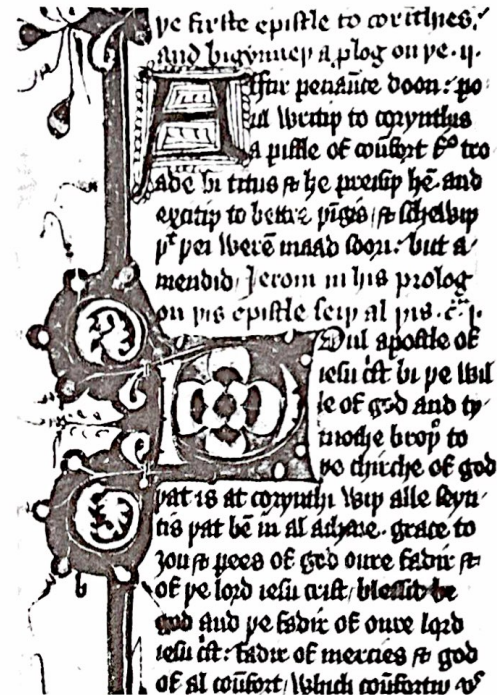 þe firste epistle to corīthies,
and bigynneþ a plog on þe .ij.
Aftir penaūce doon: po
ul writiþ to corynthis
a pistle of coūfort fº tro
ade bi titus & he preisiþ hē and
excitiþ to bettre þīgis / & schewiþ
þᵗ þei werē maad soori: but a
mendid / Jerom in his prolog
on þis epistle seiþ al þis. c. i.
Poul apostle of
iesu c̄st bi þe wil
le of god and ty
mothe broþ to
þe chirche of god
þat is at corynthi wiþ alle seyn
tis þat bē in al achaie. grace to
ȝou & pees of god oure fadir &
of þe lord iesu crist / blessid be
god and þe fadir of oure lord
iesu c̄st: fadir of mercies & god
of al coūfort / which coūfortiþ vs